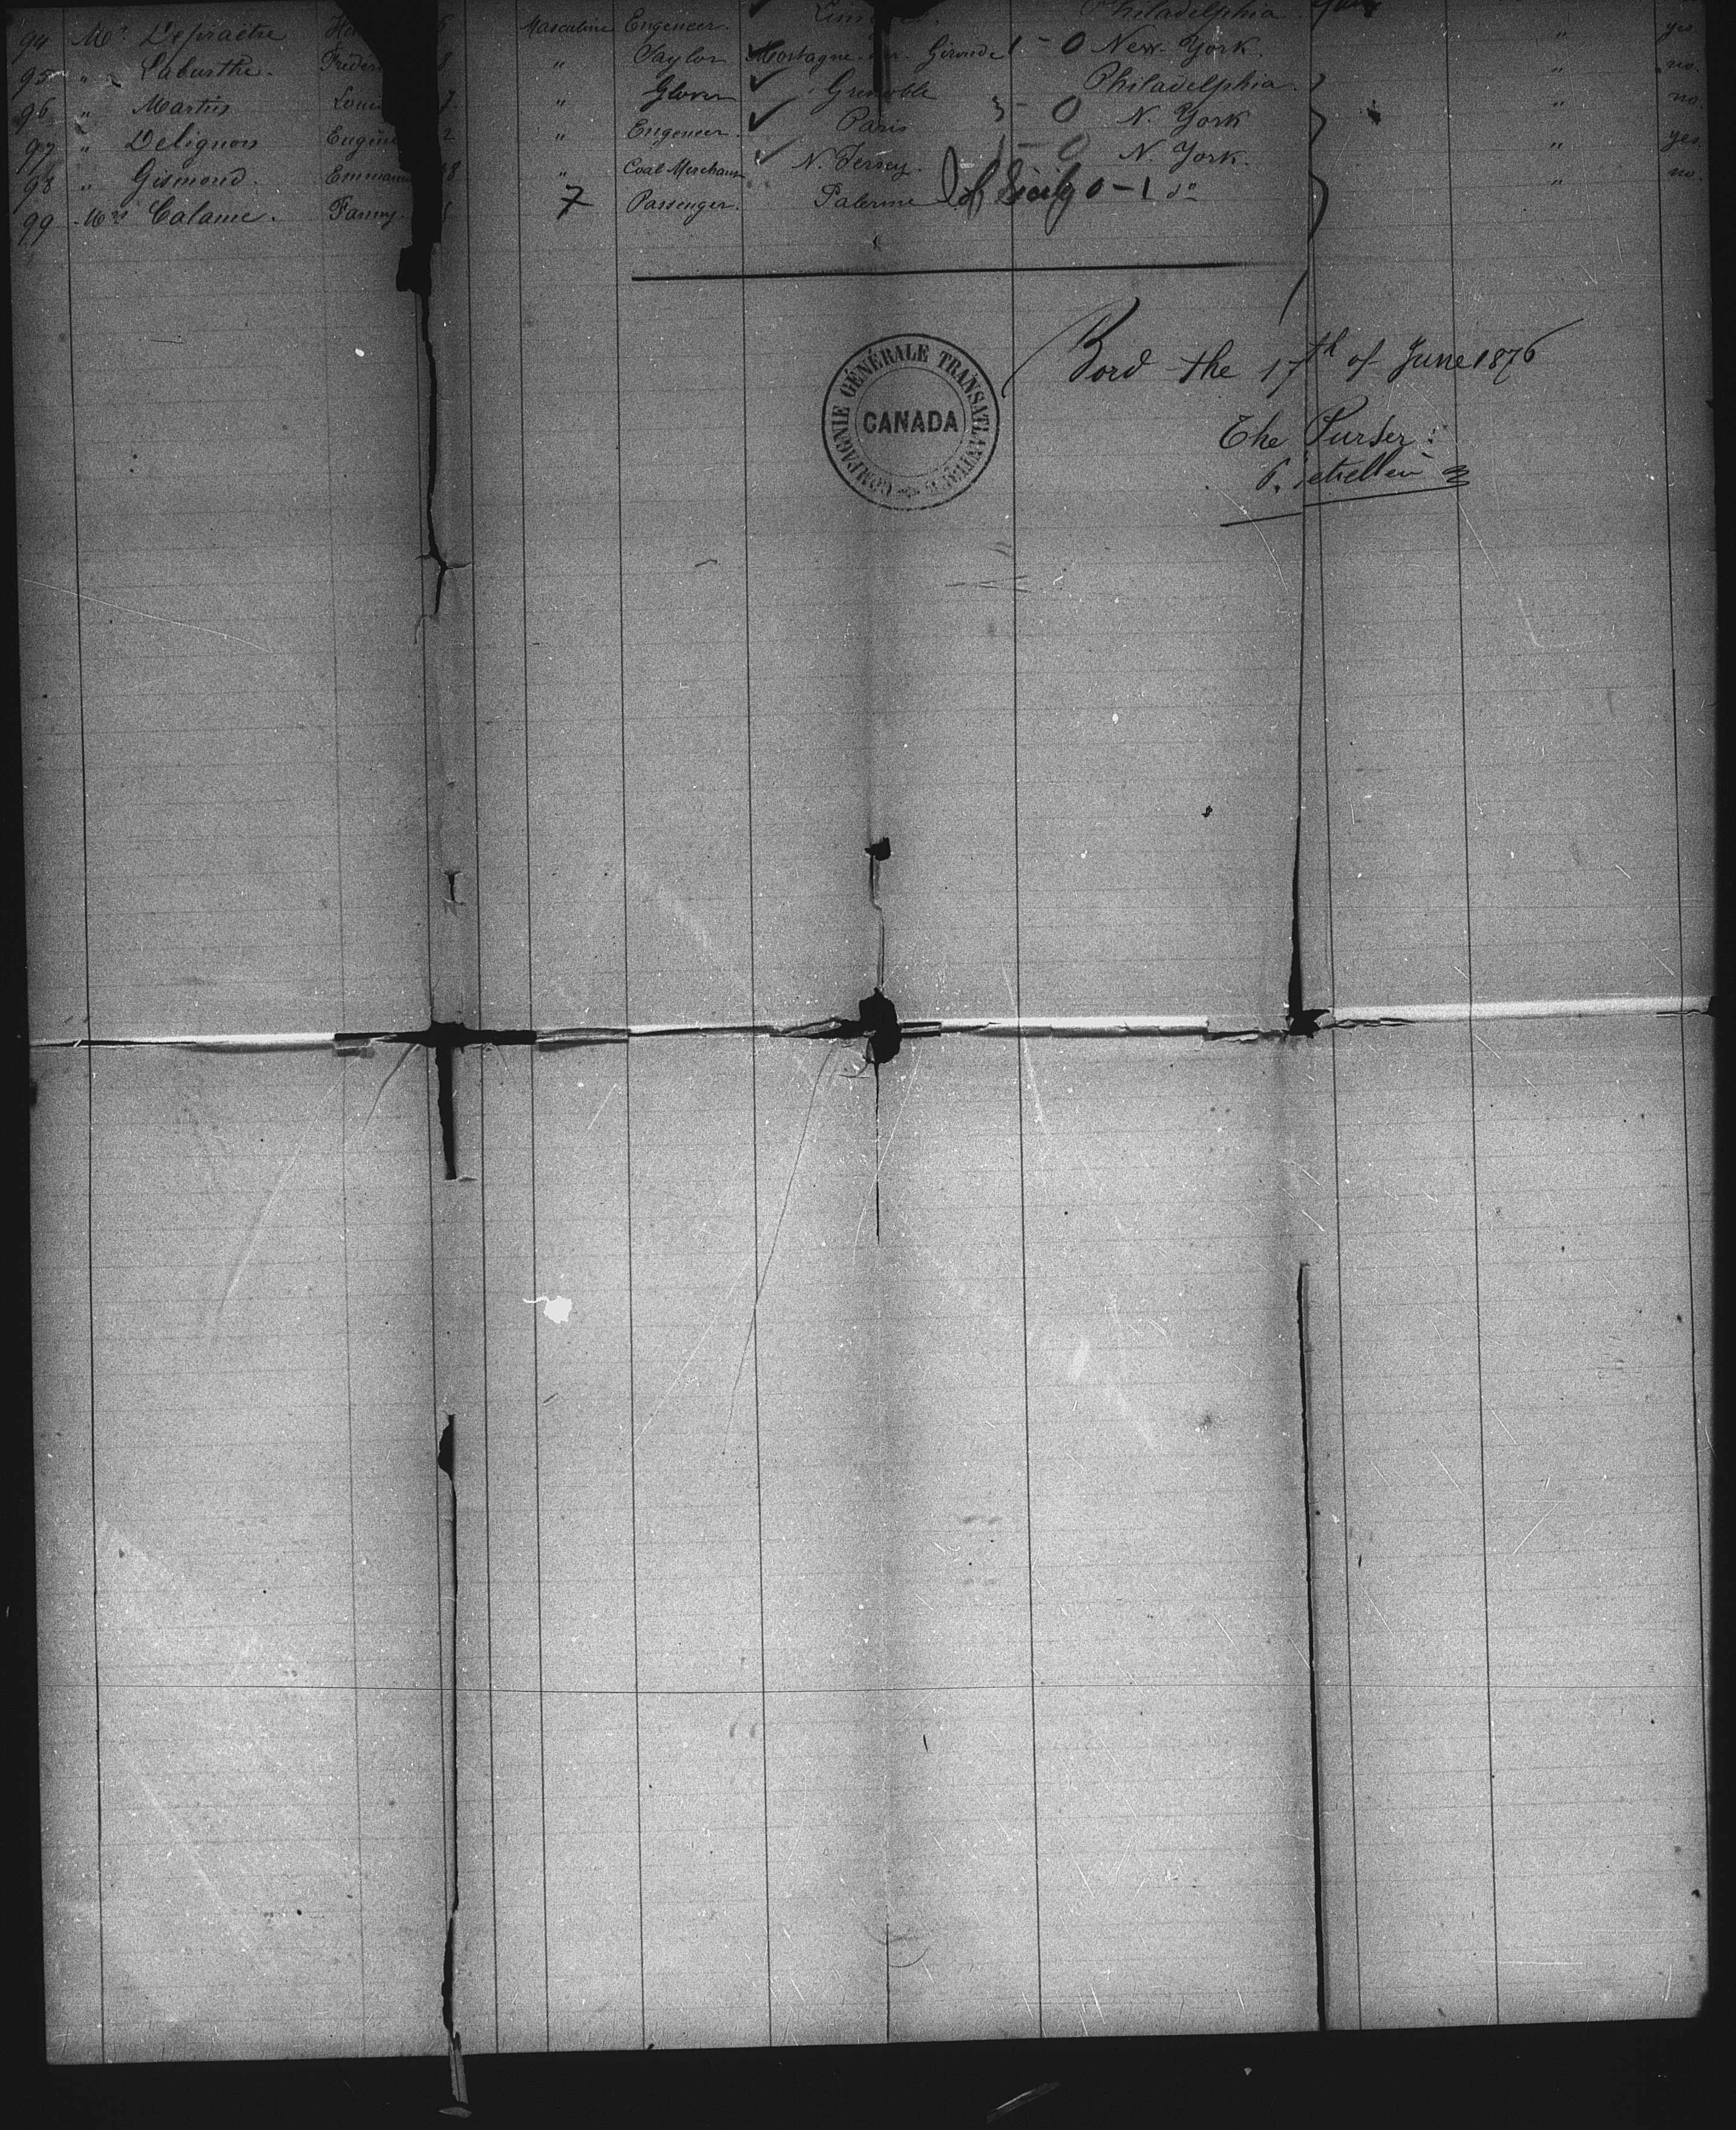 94 Mr Masculine Engeneer. Philadelphia. yes
95 " Laburthe. Taylor Mortagne Gironde 1 - 0 New-York. " no.
96 " Martin Glover Grenoble Philadelphia. " no.
97 " Delignon " Engeneer. Paris 0 N. York " yes
98 " Gismond. " Coal Merchant N. Jersey. 0 N. York. " no.
99 Mrs Calame. Fanny Passenger. Palerme Sicily 0-1 do
Bord the 17th of June 1876
COMPAGNIE GÉNÉRALE TRANSATLANTIQUE
CANADA
The Purser: